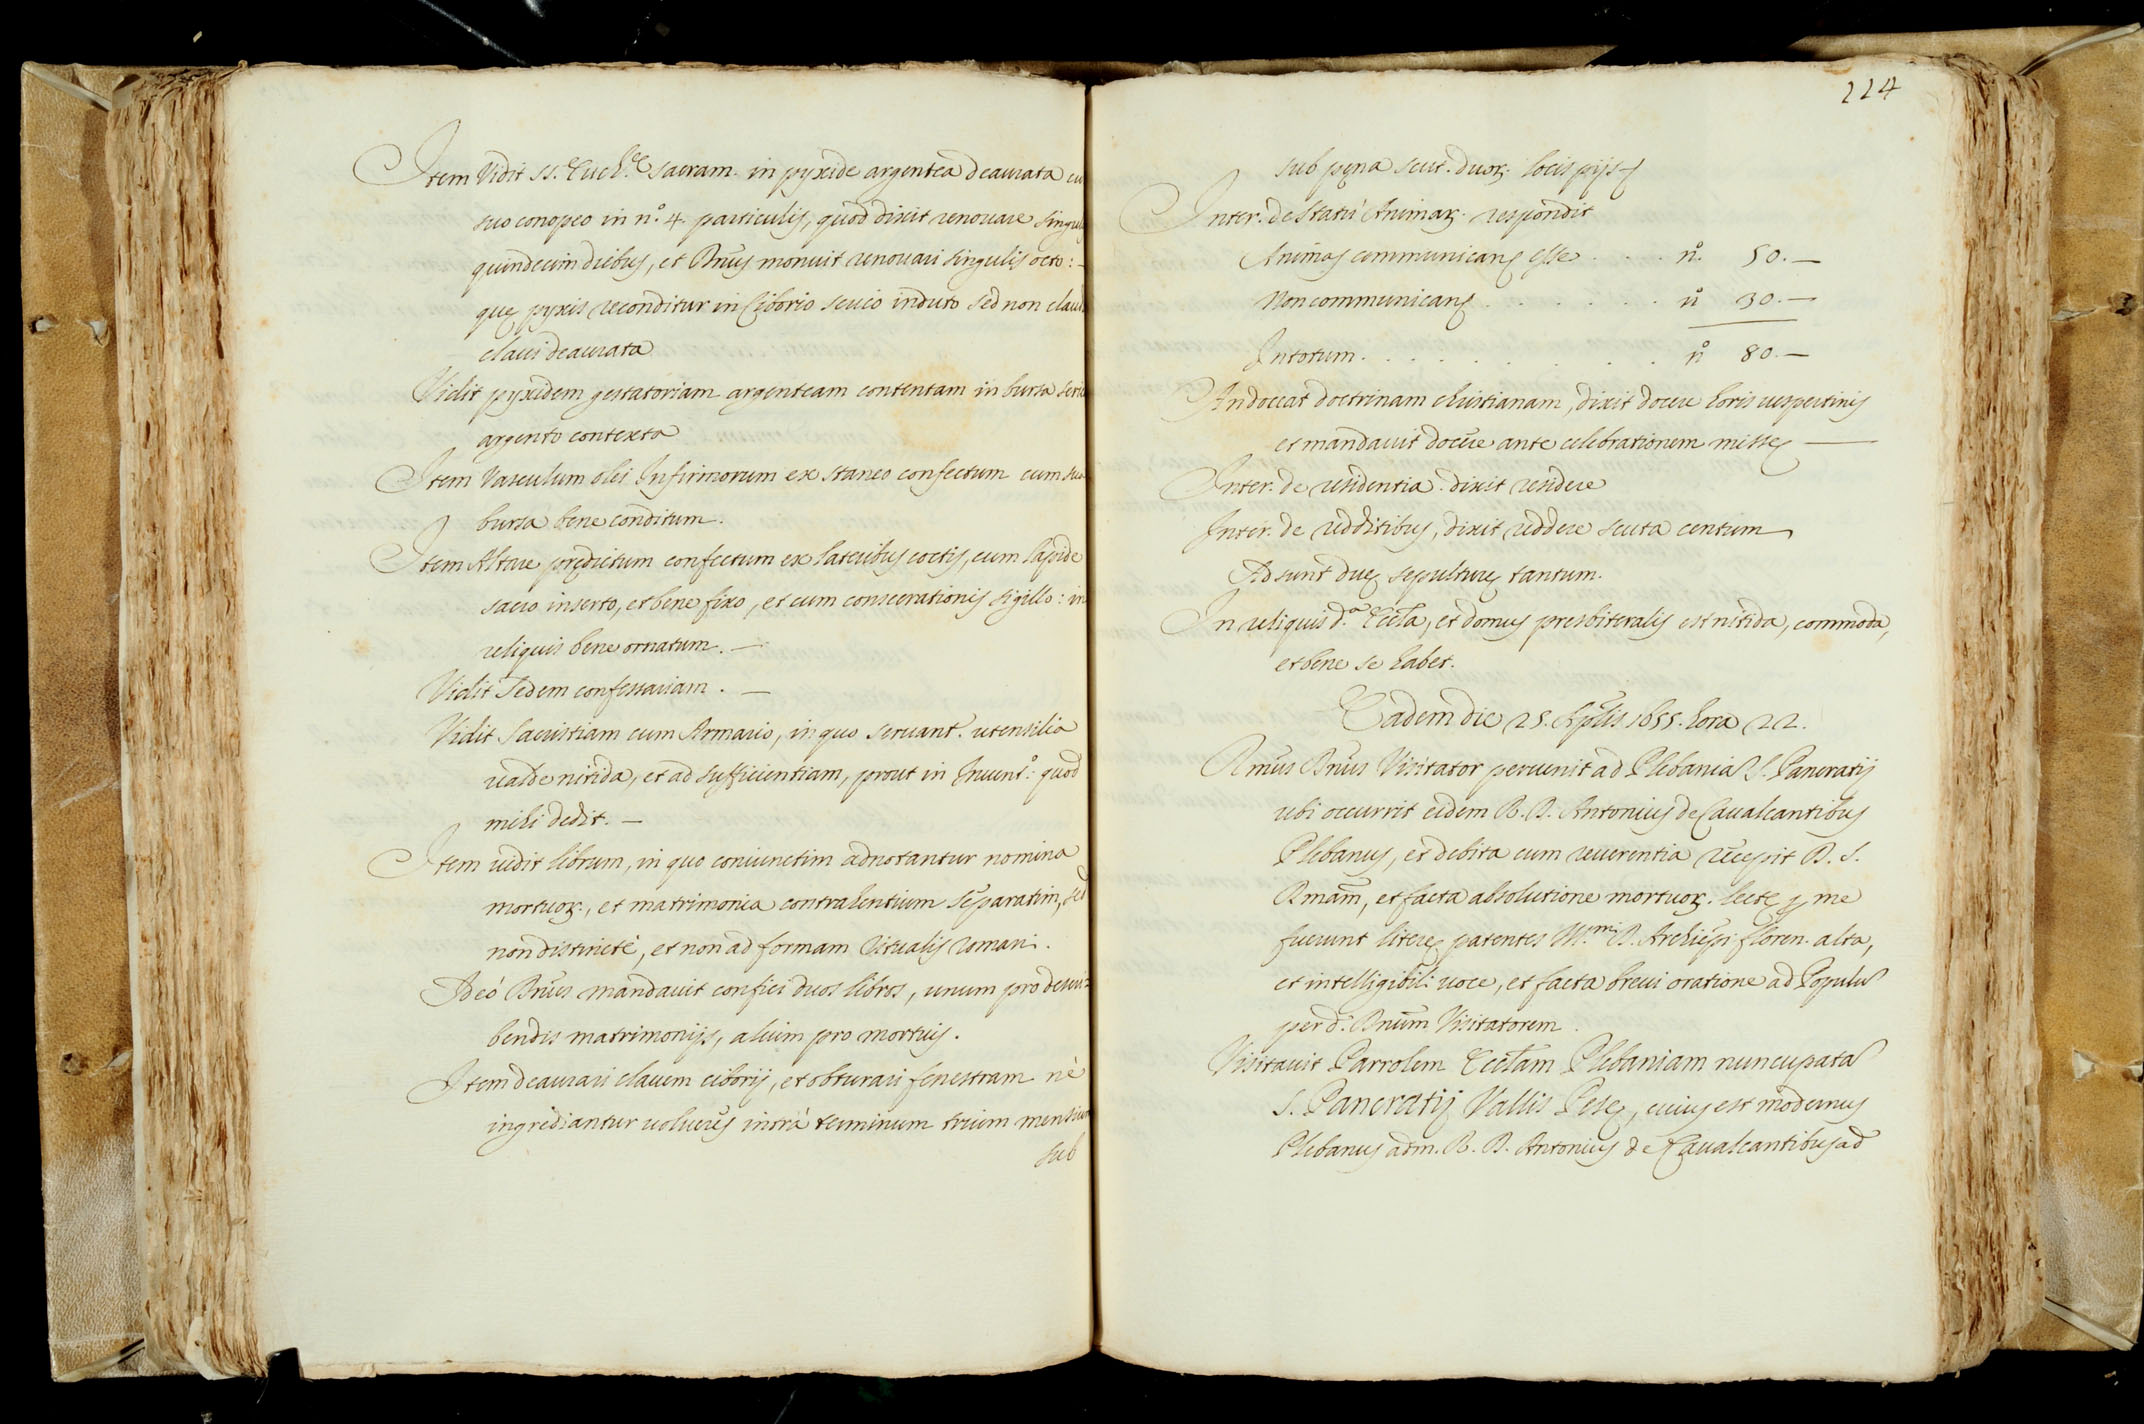 Item Vidit SS. Euch.ę sacram. in pyxide argentea deaurata cu
suo conopeo in n.º 4. particulis, quod dixit renouare singul
quindecim diebus, et Dnus monuit renouari singulis octo: -
quę pyxis reconditur in Ciborio serico induto sed non clau
claui deaurata
Vidit pyxidem gestatoriam argenteam contentam in bursa seric
argento contexta
Item Vasculum olei Infirmorum ex staneo confectum cum sua
bursa bene conditum.
Item Altare prędictum confectum ex lateribus coctis, cum lapide
sacro inserto, et bene fixo, et cum consecrationis sigillo: in
reliquis bene ornatum. —
Vidit Sedem confessariam. —
Vidit Sacristiam cum Armario, in quo seruant. utensilia
ualde nitida, et ad sufficientiam, prout in Inuent.º: quod
mihi dedit. —
Item uidit librum, in quo coniunctim adnotantur nomina
mortuoꝝ., et matrimonia contrahentium separatim, sed
non distincté, et non ad formam Ritualis romani.
Ideó Dnus mandauit confici duos libros, unum pro descri-
bendis matrimonijs, alium pro mortuis.
Item deaurari clauem ciborij, et obturari fenestram nè
ingrediantur uolucres intrà terminum trium mensium
sub
224
sub pęna scut. duoꝝ. locis pijs
Inter. de Statu Animaꝝ. respondit
Animas communicanꝭ esse . . . . n.º 50. —
Non communicanꝭ . . . . . . . n.º 30. —
In totum . . . . . . . . . . n.º 80. —
An doceat doctrinam christianam, dixit docere horis uespertinis
et mandauit docere ante celebrationem missę —
Inter. de residentia. dixit residere
Inter. de redditibus, dixit reddere scuta centum
Adsunt duę sepulturę tantum.
In reliquis d.ª Eccla, et domus presbiteralis est nitida, commoda,
et bene se habet.
Eadem die 25. Aplis 1655. hora 22.
Rmus Dnus Visitator peruenit ad Plebaniã S. Pancratij
ubi occurrit eidem R. D. Antonius de Caualcantibus
Plebanus, et debita cum reuerentia recepit D. S.
Rmam, et facta absolutione mortuoꝝ. lectę ꝑ me
fuerunt literę patentes Ill.mi D. Archiepi floren. alta,
et intelligibili uoce, et facta breui oratione ad Populũ
per d. Dnum Visitatorem.
Visitauit Parrolem Ecclam Plebaniam nuncupatã
S. Pancratij Vallis Pesę, cuius est modernus
Plebanus adm. R. D. Antonius de Caualcantibus ad